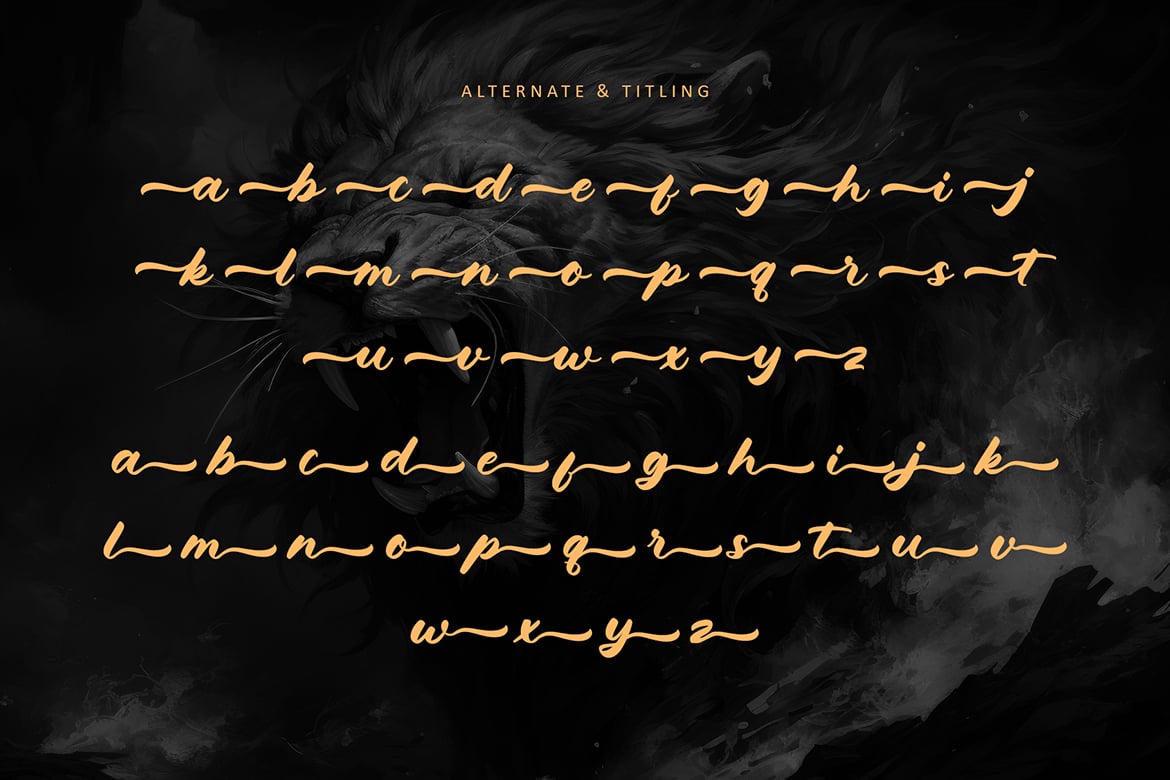 ALTERNATE & TITLING
a b c d e f g h i j
k l m n o p q r s t
u v w x y z
a b c d e f g h i j k
l m n o p q r s t u v
w x y z